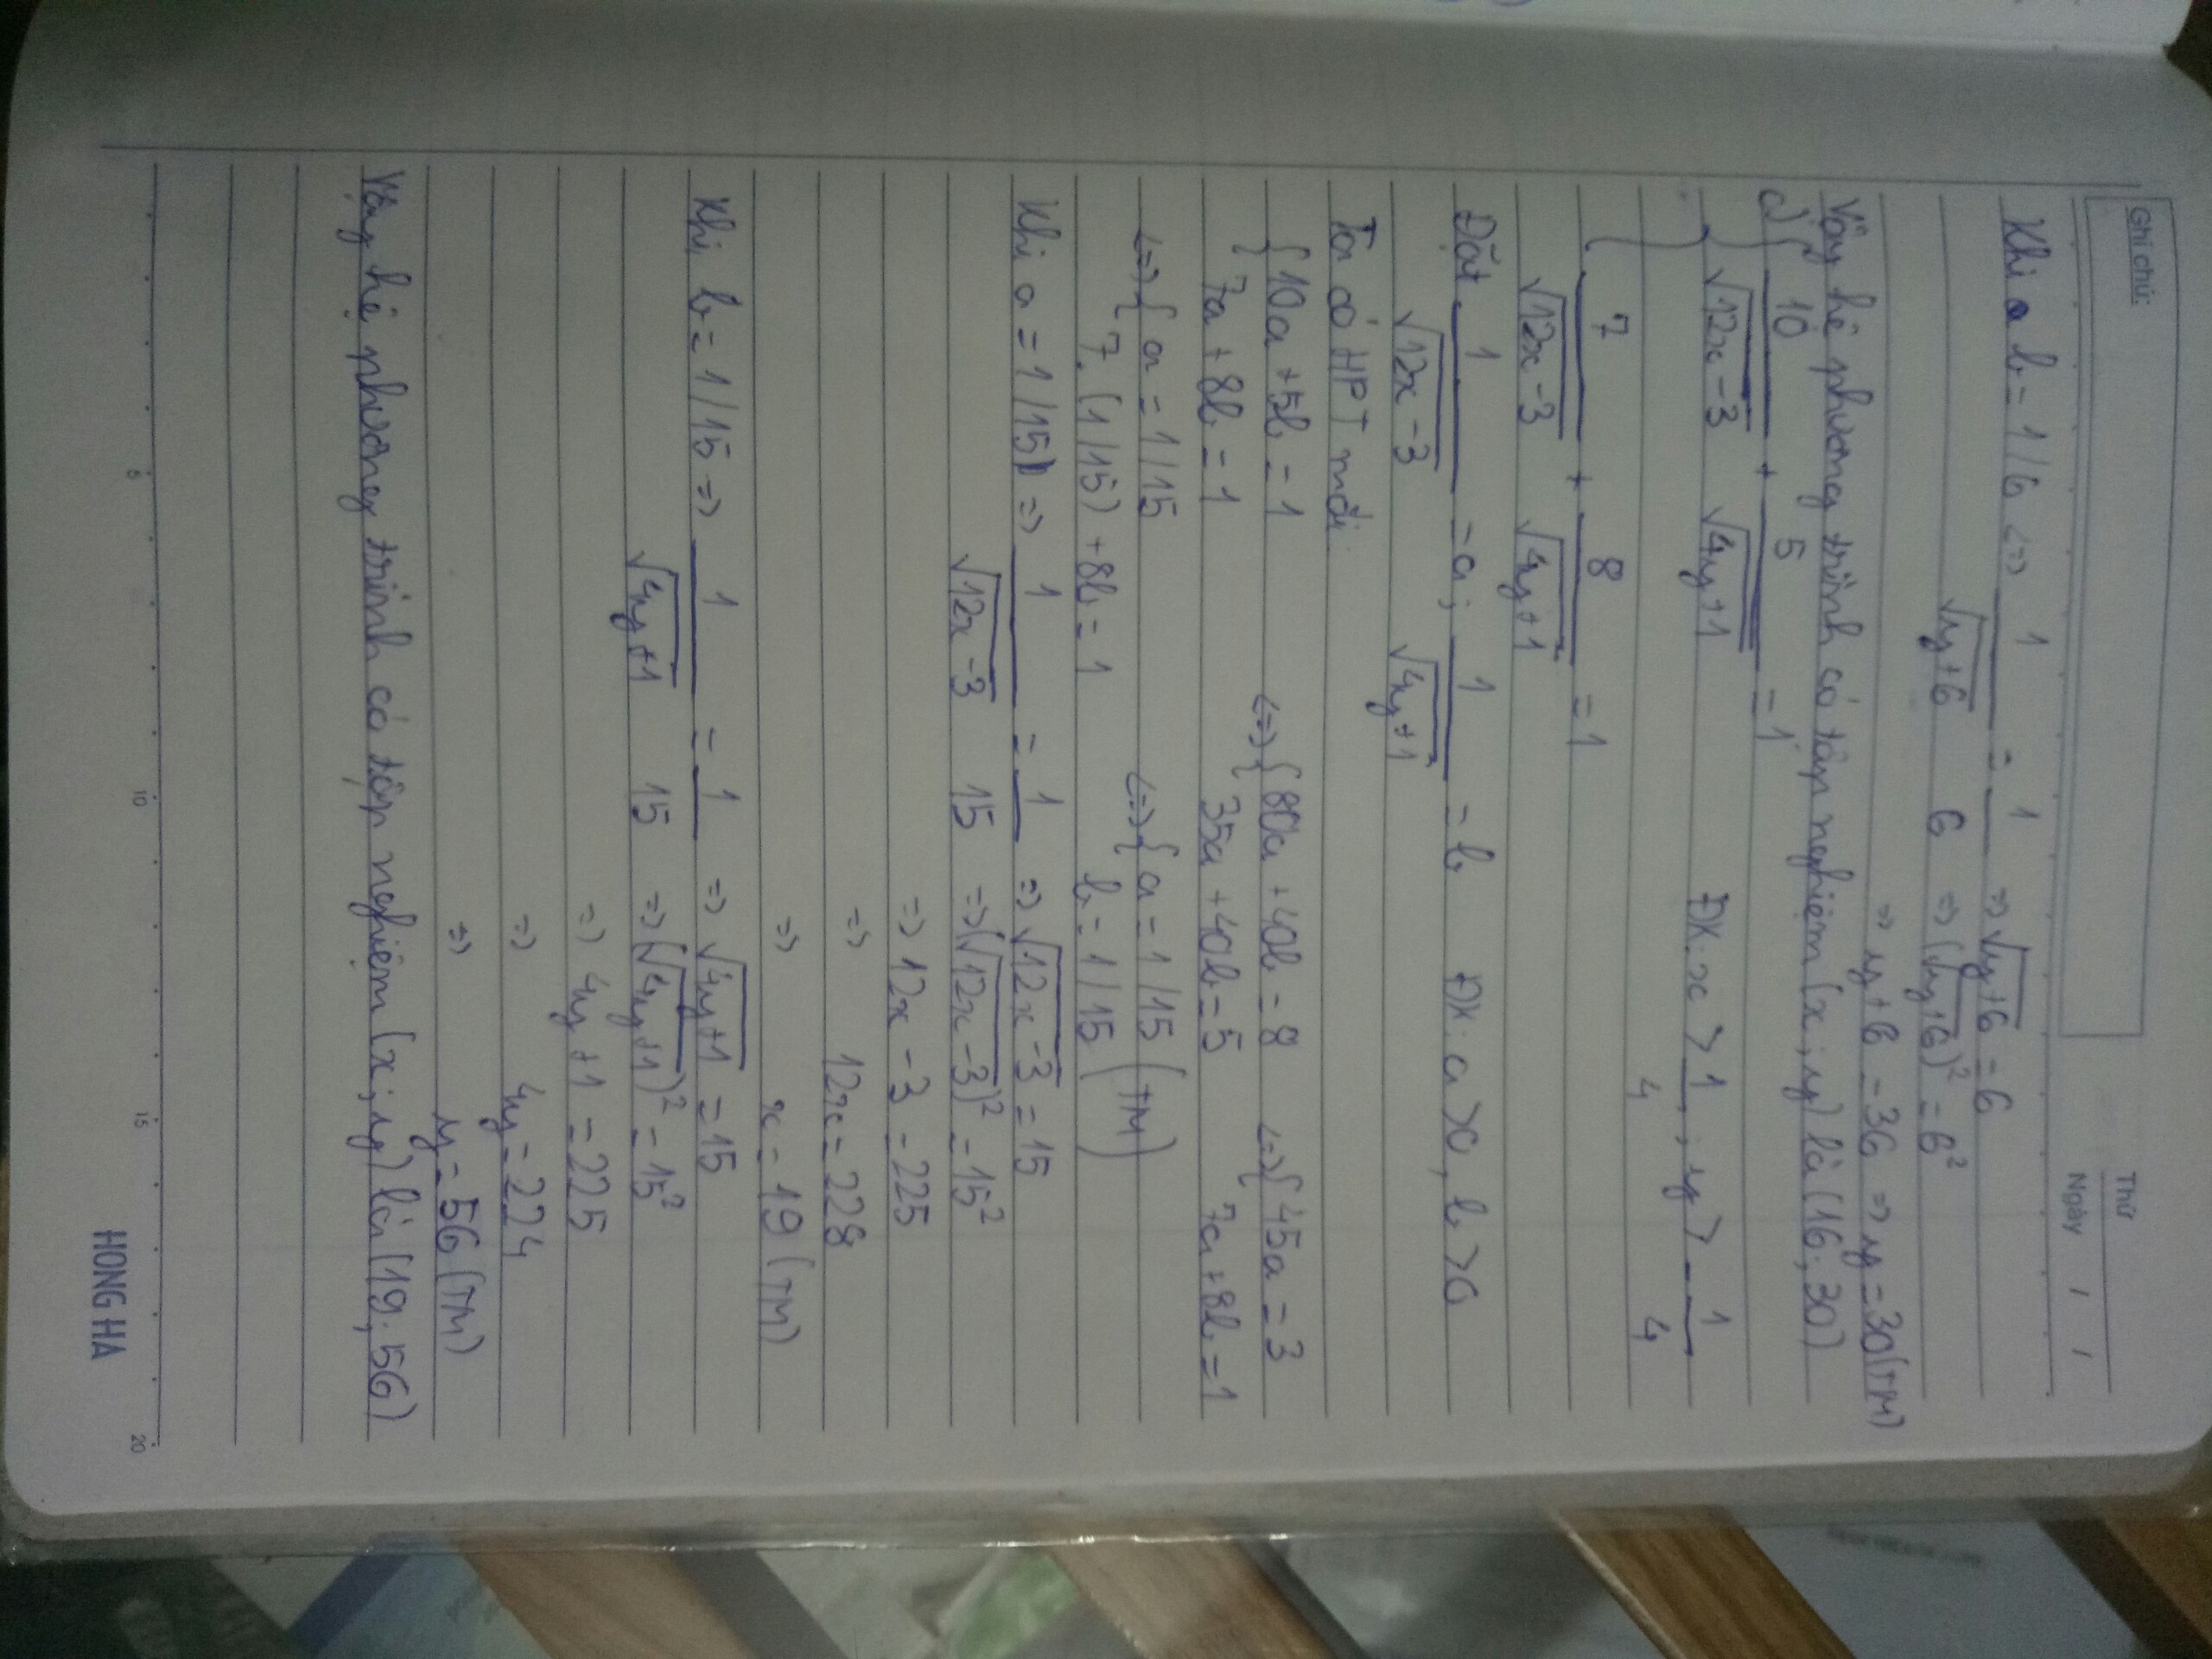 Ghi chú:
Thứ
Ngày / /
Khi b = 1/6 <=> 1/√(y+6) = 1/6 => √(y+6) = 6
=> (√(y+6))² = 6²
=> y+6 = 36 => y = 30 (TM)
Vậy hệ phương trình có tập nghiệm (x; y) là (16; 30)
d) { 10/√(12x-3) + 5/√(4y+1) = 1
ĐK: x > 1/4; y > -1/4
7/√(12x-3) + 8/√(4y+1) = 1
Đặt 1/√(12x-3) = a; 1/√(4y+1) = b ĐK: a > 0, b > 0
Ta có HPT mới
{ 10a + 5b = 1 <=> { 80a + 40b = 8 <=> { 45a = 3
7a + 8b = 1 35a + 40b = 5 7a + 8b = 1
<=> { a = 1/15 <=> { a = 1/15 (TM)
7.(1/15) + 8b = 1 b = 1/15
Khi a = 1/15 => 1/√(12x-3) = 1/15 => √(12x-3) = 15
=> (√(12x-3))² = 15²
=> 12x - 3 = 225
=> 12x = 228
=> x = 19 (TM)
Khi b = 1/15 => 1/√(4y+1) = 1/15 => √(4y+1) = 15
=> (√(4y+1))² = 15²
=> 4y+1 = 225
=> 4y = 224
=> y = 56 (TM)
Vậy hệ phương trình có tập nghiệm (x; y) là (19; 56)
5 10 15 20
HONG HA